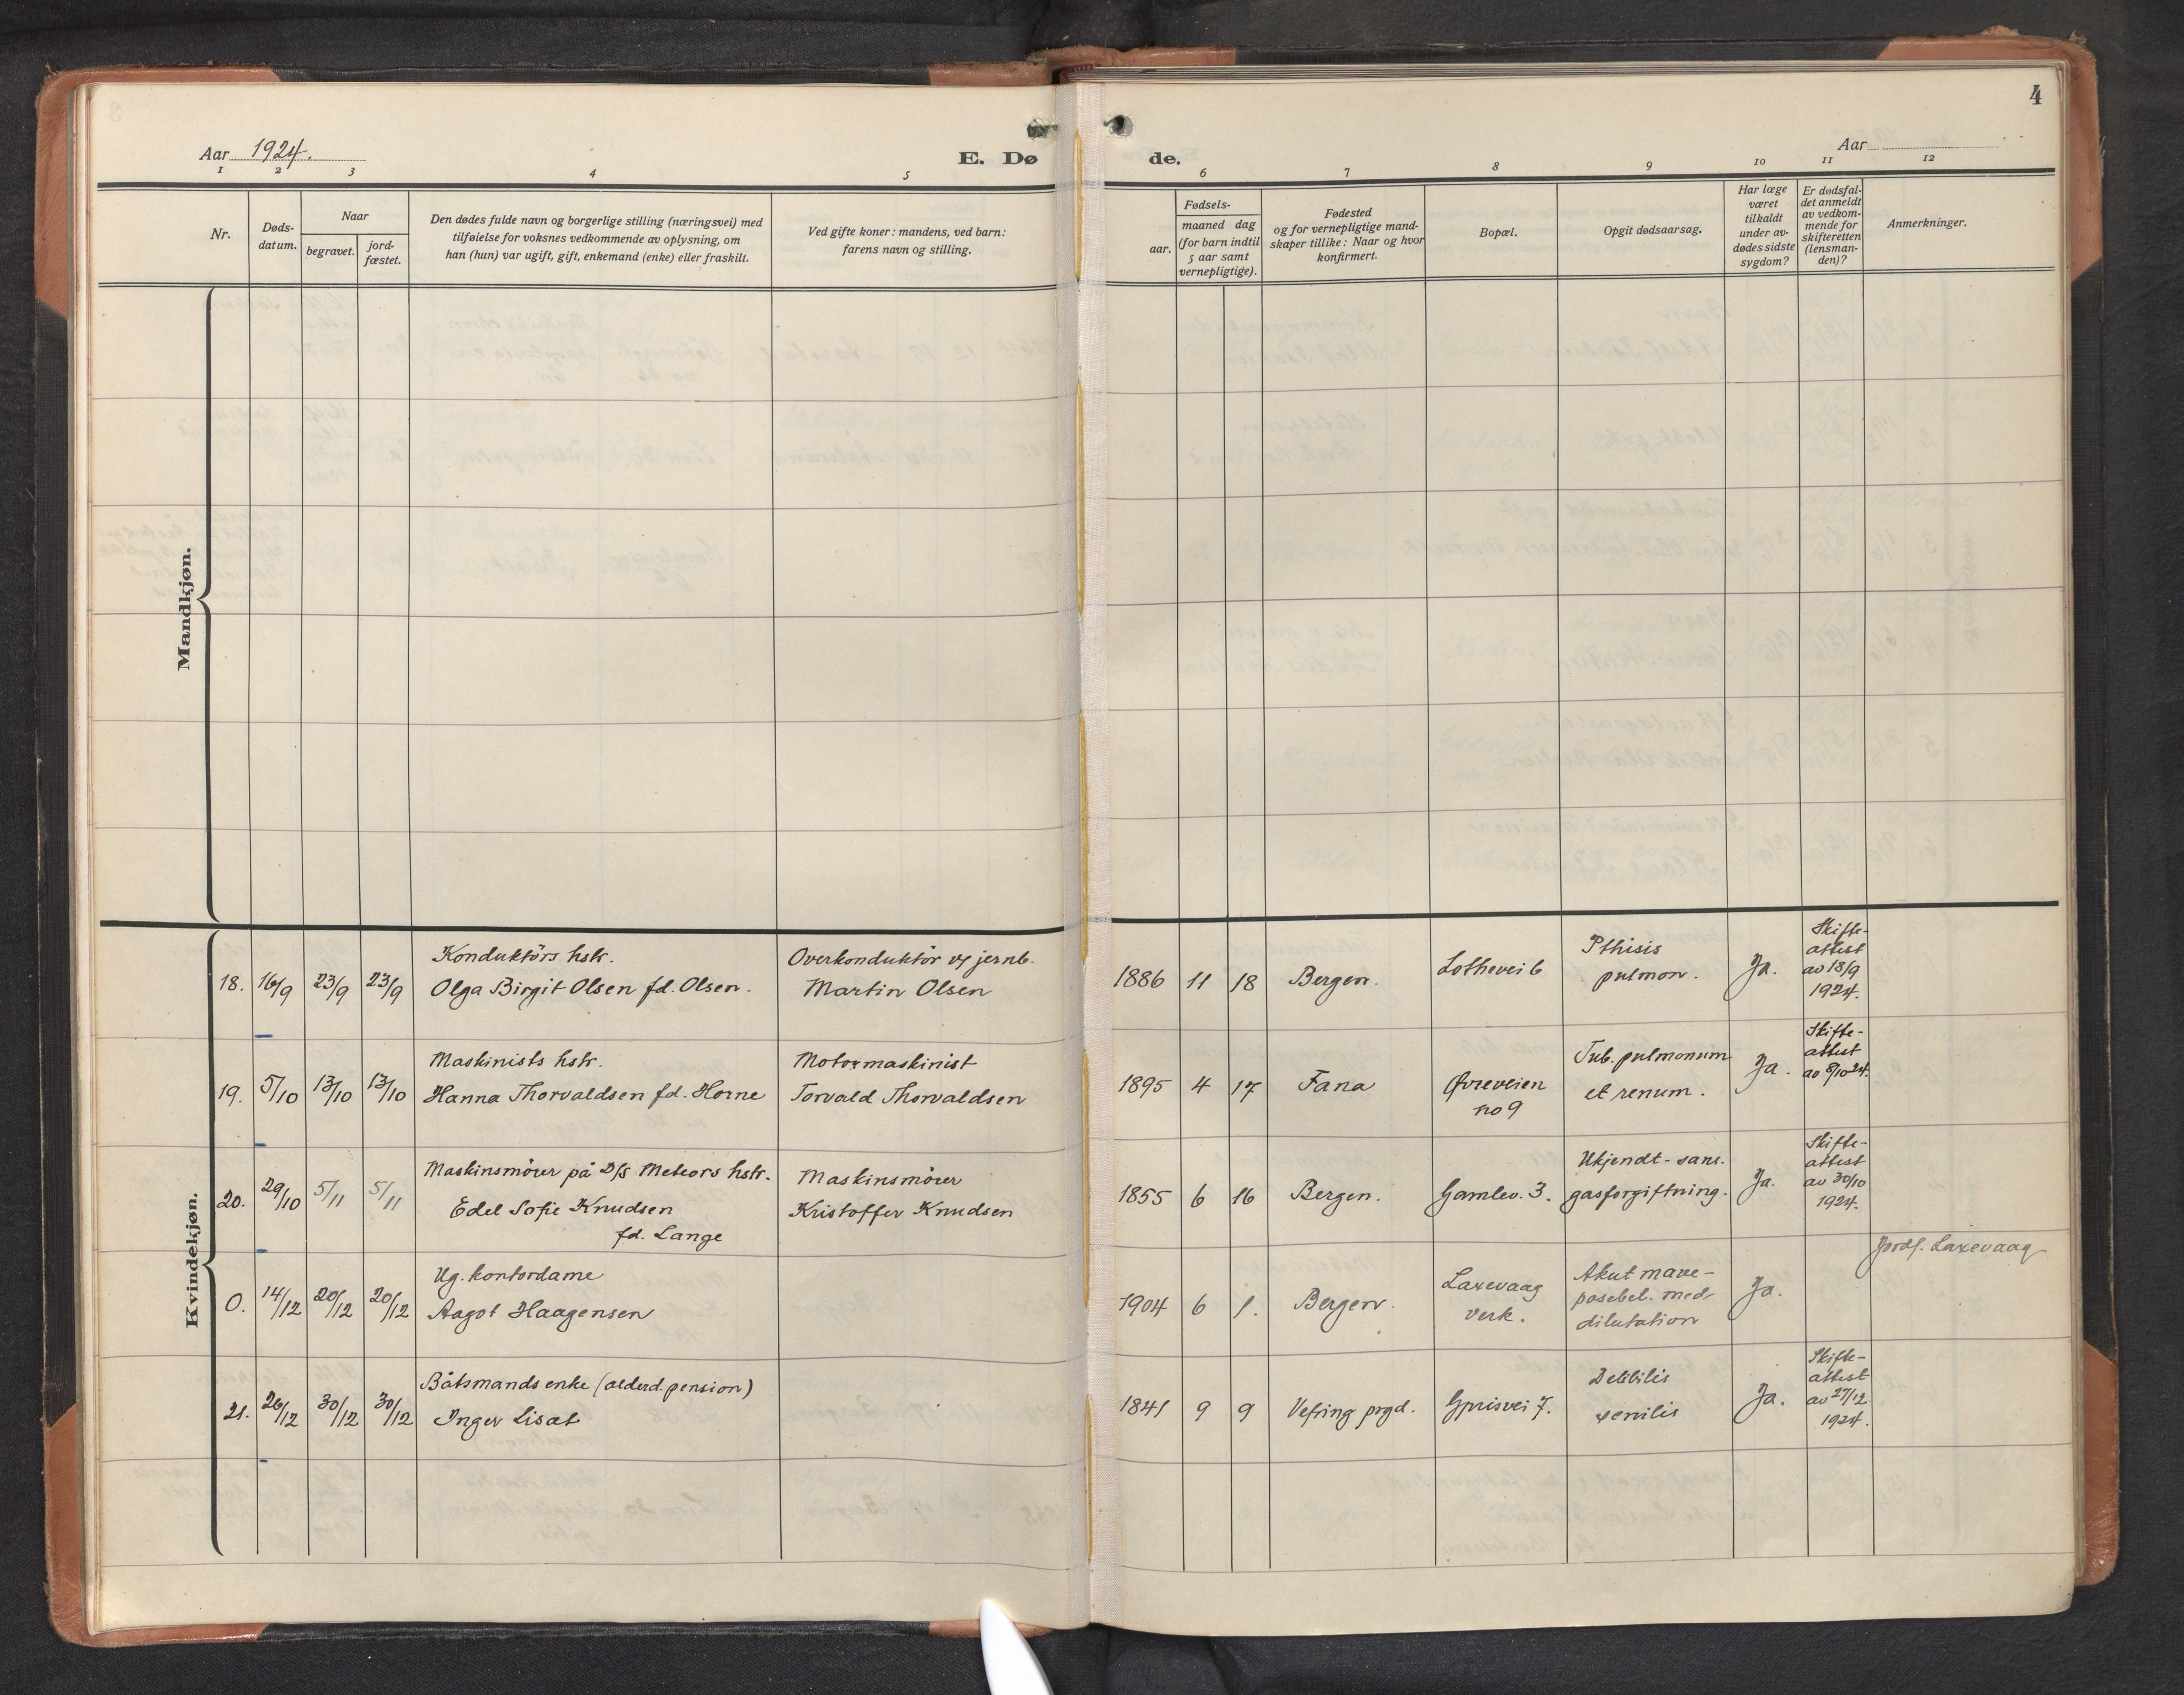 4
Aar 1924.
E. Dø
de.
Aar
1 2 3 4 5
6 7 8 9 10 11 12
Nr.
Døds-
datum.
Naar
begravet.
jord-
fæstet.
Den dødes fulde navn og borgerlige stilling (næringsvei) med
tilføielse for voksnes vedkommende av oplysning, om
han (hun) var ugift, gift, enkemand (enke) eller fraskilt.
Ved gifte koner: mandens, ved barn:
farens navn og stilling.
Fødsels-
aar.
maaned dag
(for barn indtil
5 aar samt
vernepligtige).
Fødested
og for vernepligtige mand-
skaper tillike: Naar og hvor
konfirmert.
Bopæl.
Opgit dødsaarsag.
Har læge
været
tilkaldt
under av-
dødes sidste
sygdom?
Er dødsfal-
det anmeldt
av vedkom-
mende for
skifteretten
(lensman-
den)?
Anmerkninger.
Mandkjøn.
Kvindekjøn.
18. 16/9 23/9 23/9
Konduktörs hstr.
Olga Birgit Olsen fd. Olsen.
Overkonduktör v/ jernb.
Martin Olsen
1886 11 18 Bergen.
Lothevei 6
Pthisis
pulmon.
Ja.
Skifte-
attest
av 18/9
1924.
19. 5/10 13/10 13/10
Maskinists hstr.
Hanna Thorvaldsen fd. Horne
Motormaskinist
Torvald Thorvaldsen
1895 4 17 Fana
Øvreveien
no 9
Tub. pulmonum
et renum.
Ja.
Skifte-
attest
av 8/10 24.
20. 29/10 5/11 5/11
Maskinsmörer på D/S Meteors hstr.
Edel Sofie Knudsen
fd. Lange
Maskinsmörer
Kristoffer Knudsen
1855 6 16 Bergen.
Gamlev. 3.
Ukjendt - sans.
gasforgiftning.
Ja.
Skifte-
attest
av 30/10
1924.
0. 14/12 20/12 20/12
Ug. kontordame
Aagot Haagensen
1904 6 1. Bergen.
Laxevaag
verk.
Akut mave-
posebet. med
dilutation
Ja.
Laxevaag
21. 26/12 30/12 30/12
Båtsmands enke (alderd. pension)
Inger Lisat
1841 9 9 Vefring prgd.
Gprisvei 7.
Debilis
senilis
Ja.
Skifte-
attest
av 27/12
1924.